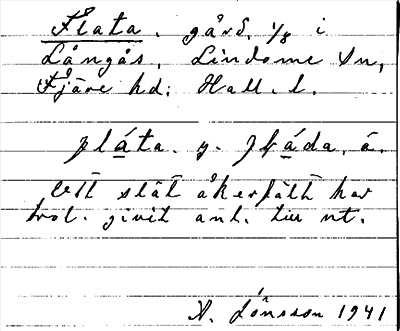 Flata. gård, 1/8 i
Långås, Lindome sn,
Fjäre hd. Hall. l.
flàta. y. flàda, à.
Ett slät åkerfält har
trol. givit anl. till nt.
A. Jönsson 1941